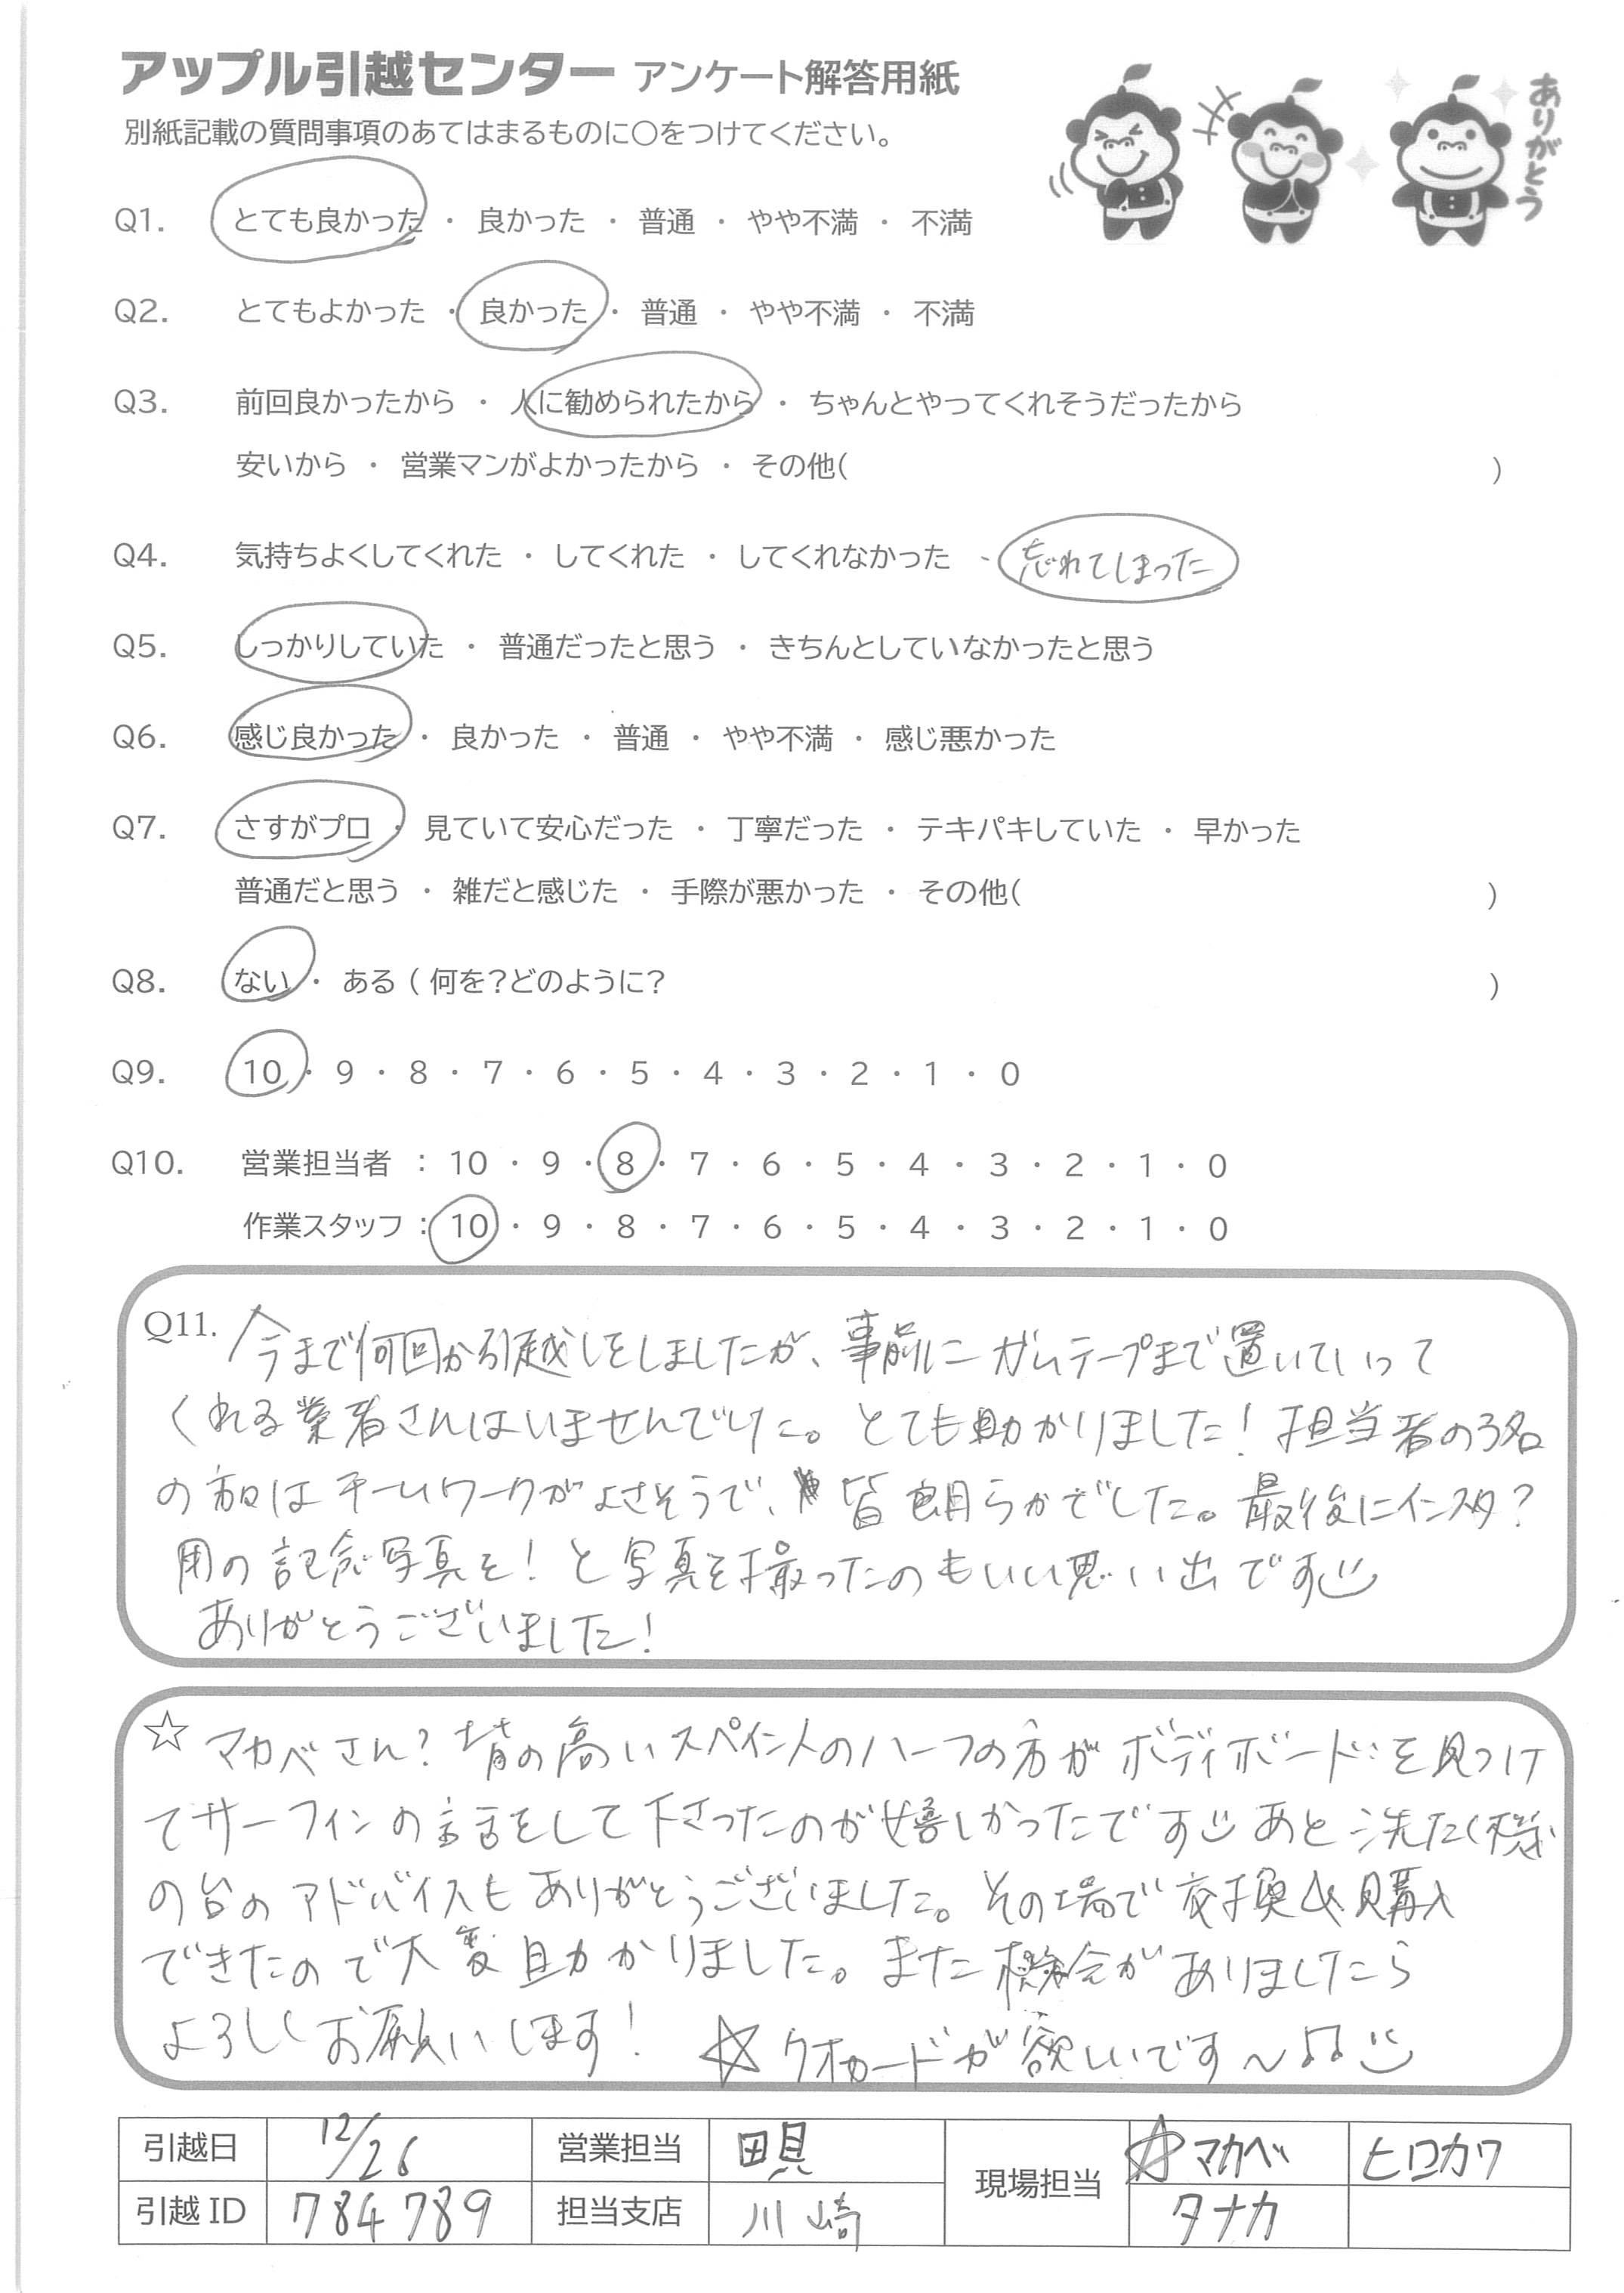 アップル引越センター アンケート解答用紙
ありがとう
別紙記載の質問事項のあてはまるものに○をつけてください。
Q1. とても良かった ・ 良かった ・ 普通 ・ やや不満 ・ 不満
Q2. とてもよかった ・ 良かった ・ 普通 ・ やや不満 ・ 不満
Q3. 前回良かったから ・ 人に勧められたから ・ ちゃんとやってくれそうだったから
安いから ・ 営業マンがよかったから ・ その他( )
Q4. 気持ちよくしてくれた ・ してくれた ・ してくれなかった ・ 忘れてしまった
Q5. しっかりしていた ・ 普通だったと思う ・ きちんとしていなかったと思う
Q6. 感じ良かった ・ 良かった ・ 普通 ・ やや不満 ・ 感じ悪かった
Q7. さすがプロ ・ 見ていて安心だった ・ 丁寧だった ・ テキパキしていた ・ 早かった
普通だと思う ・ 雑だと感じた ・ 手際が悪かった ・ その他( )
Q8. ない ・ ある ( 何を?どのように? )
Q9. 10 ・ 9 ・ 8 ・ 7 ・ 6 ・ 5 ・ 4 ・ 3 ・ 2 ・ 1 ・ 0
Q10. 営業担当者 : 10 ・ 9 ・ 8 ・ 7 ・ 6 ・ 5 ・ 4 ・ 3 ・ 2 ・ 1 ・ 0
作業スタッフ : 10 ・ 9 ・ 8 ・ 7 ・ 6 ・ 5 ・ 4 ・ 3 ・ 2 ・ 1 ・ 0
Q11. 今まで何回か引越しをしましたが、事前にガムテープまで置いていって
くれる業者さんはいませんでした。とても助かりました! 担当者の3名
の方々はチームワークがよさそうで、皆朗らかでした。最後にインスタ?
用の記念写真を!と写真を撮ったのもいい思い出です
ありがとうございました!
☆ マカベさん? 背の高いスペイン人のハーフの方がボディボードを見つけ
てサーフィンの話をして下さったのが嬉しかったです あと洗たく機
の台のアドバイスもありがとうございました。その場で交換&購入
できたので大変助かりました。また機会がありましたら
よろしくお願いします! ☆クオカードが欲しいです〜♪♪
引越日 12/26 営業担当 現場担当 ☆マカベ ヒロカワ
引越 ID 784789 担当支店 川崎 タナカ